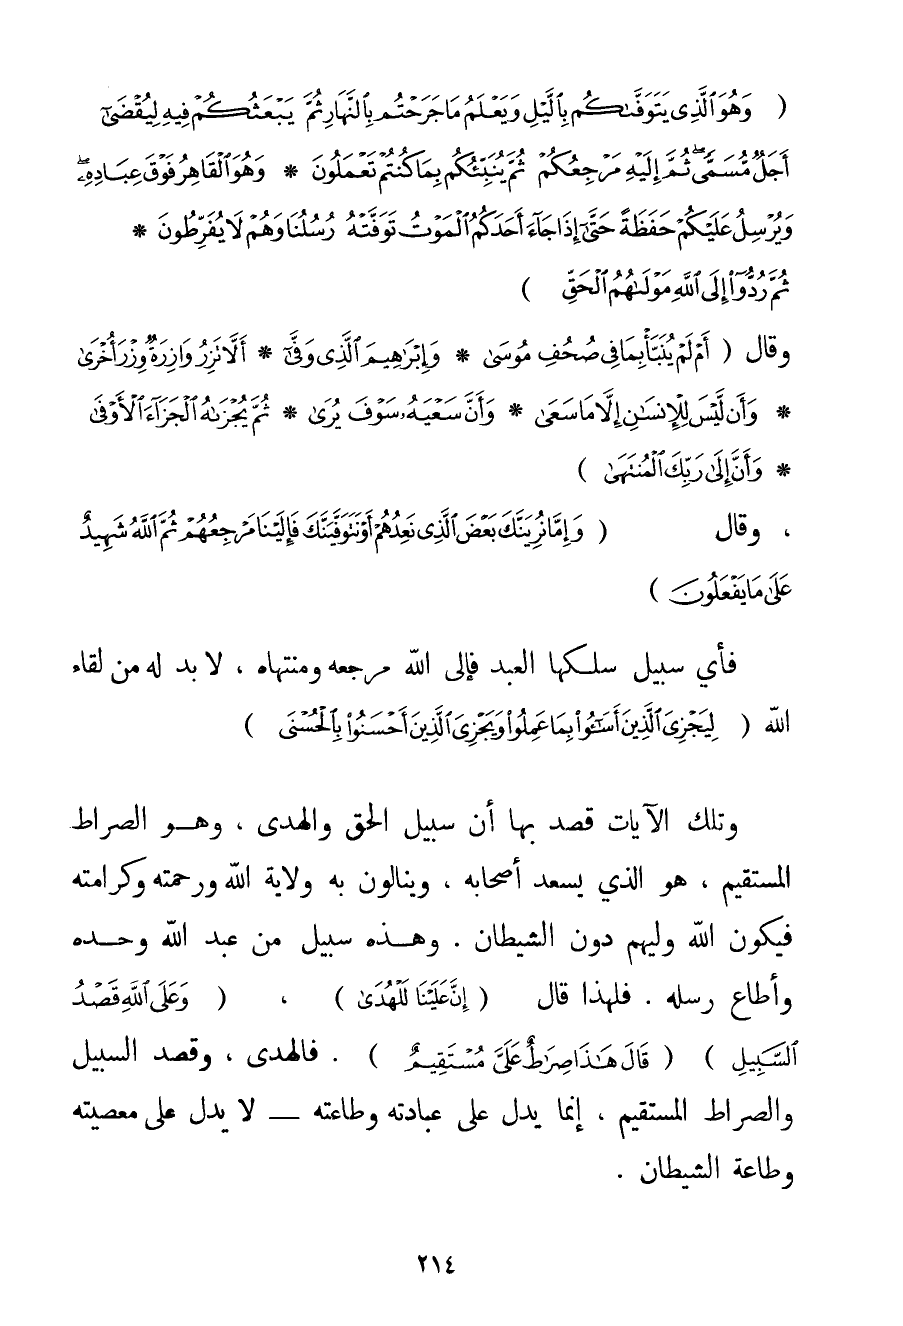 ( وَهُوَ ٱلَّذِى يَتَوَفَّىٰكُم بِٱلَّيْلِ وَيَعْلَمُ مَا جَرَحْتُم بِٱلنَّهَارِ ثُمَّ يَبْعَثُكُمْ فِيهِ لِيُقْضَىٰٓ
أَجَلٌ مُّسَمًّى ۖ ثُمَّ إِلَيْهِ مَرْجِعُكُمْ ثُمَّ يُنَبِّئُكُم بِمَا كُنتُمْ تَعْمَلُونَ * وَهُوَ ٱلْقَاهِرُ فَوْقَ عِبَادِهِۦ ۖ
وَيُرْسِلُ عَلَيْكُمْ حَفَظَةً حَتَّىٰٓ إِذَا جَآءَ أَحَدَكُمُ ٱلْمَوْتُ تَوَفَّتْهُ رُسُلُنَا وَهُمْ لَا يُفَرِّطُونَ *
ثُمَّ رُدُّوٓا۟ إِلَى ٱللَّهِ مَوْلَىٰهُمُ ٱلْحَقِّ )
وقال ( أَمْ لَمْ يُنَبَّأْ بِمَا فِى صُحُفِ مُوسَىٰ * وَإِبْرَٰهِيمَ ٱلَّذِى وَفَّىٰٓ * أَلَّا تَزِرُ وَازِرَةٌ وِزْرَ أُخْرَىٰ
* وَأَن لَّيْسَ لِلْإِنسَٰنِ إِلَّا مَا سَعَىٰ * وَأَنَّ سَعْيَهُۥ سَوْفَ يُرَىٰ * ثُمَّ يُجْزَىٰهُ ٱلْجَزَآءَ ٱلْأَوْفَىٰ
* وَأَنَّ إِلَىٰ رَبِّكَ ٱلْمُنتَهَىٰ )
، وقال ( وَإِمَّا نُرِيَنَّكَ بَعْضَ ٱلَّذِى نَعِدُهُمْ أَوْ نَتَوَفَّيَنَّكَ فَإِلَيْنَا مَرْجِعُهُمْ ثُمَّ ٱللَّهُ شَهِيدٌ
عَلَىٰ مَا يَفْعَلُونَ )
فأي سبيل سلكها العبد فإلى الله مرجعه ومنتهاه ، لا بد له من لقاء
الله ( لِيَجْزِىَ ٱلَّذِينَ أَسَٰٓـُٔوا۟ بِمَا عَمِلُوا۟ وَيَجْزِىَ ٱلَّذِينَ أَحْسَنُوا۟ بِٱلْحُسْنَى )
وتلك الآيات قصد بها أن سبيل الحق والهدى ، وهو الصراط
المستقيم ، هو الذي يسعد أصحابه ، وينالون به ولاية الله ورحمته وكرامته
فيكون الله وليهم دون الشيطان . وهذه سبيل من عبد الله وحده
وأطاع رسله . فلهذا قال ( إِنَّ عَلَيْنَا لَلْهُدَىٰ ) ، ( وَعَلَى ٱللَّهِ قَصْدُ
ٱلسَّبِيلِ ) ( قَالَ هَٰذَا صِرَٰطٌ عَلَىَّ مُسْتَقِيمٌ ) . فالهدى ، وقصد السبيل
والصراط المستقيم ، إنما يدل على عبادته وطاعته — لا يدل على معصيته
وطاعة الشيطان .
٢١٤